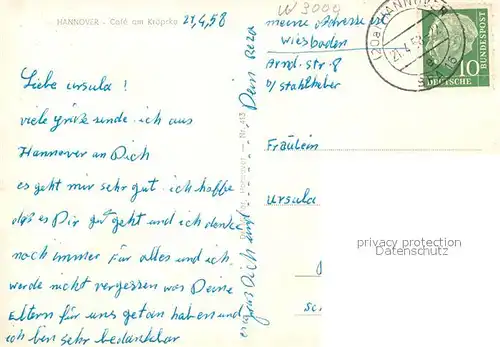 HANNOVER - Café am Kröpcke 21,4,58
Liebe Ursula !
viele grüße sende ich aus
Hannover an Dich
es geht mir sehr gut ich hoffe
daß es Dir gut geht und ich denke
noch immer für alles und ich
werde nicht vergessen was Deine
Eltern für uns getan haben und
ich bin sehr bedankbar
Dich und Dein Reza
Hannover — Nr. 413
W 3009
meine Adresse ist
Wiesbaden
Arnd.-str. 8
b/ Stahlheber
Fräulein
Ursula
(20a) HANNOVER
21.4.58
10
DEUTSCHE
BUNDESPOST
privacy protection
Datenschutz